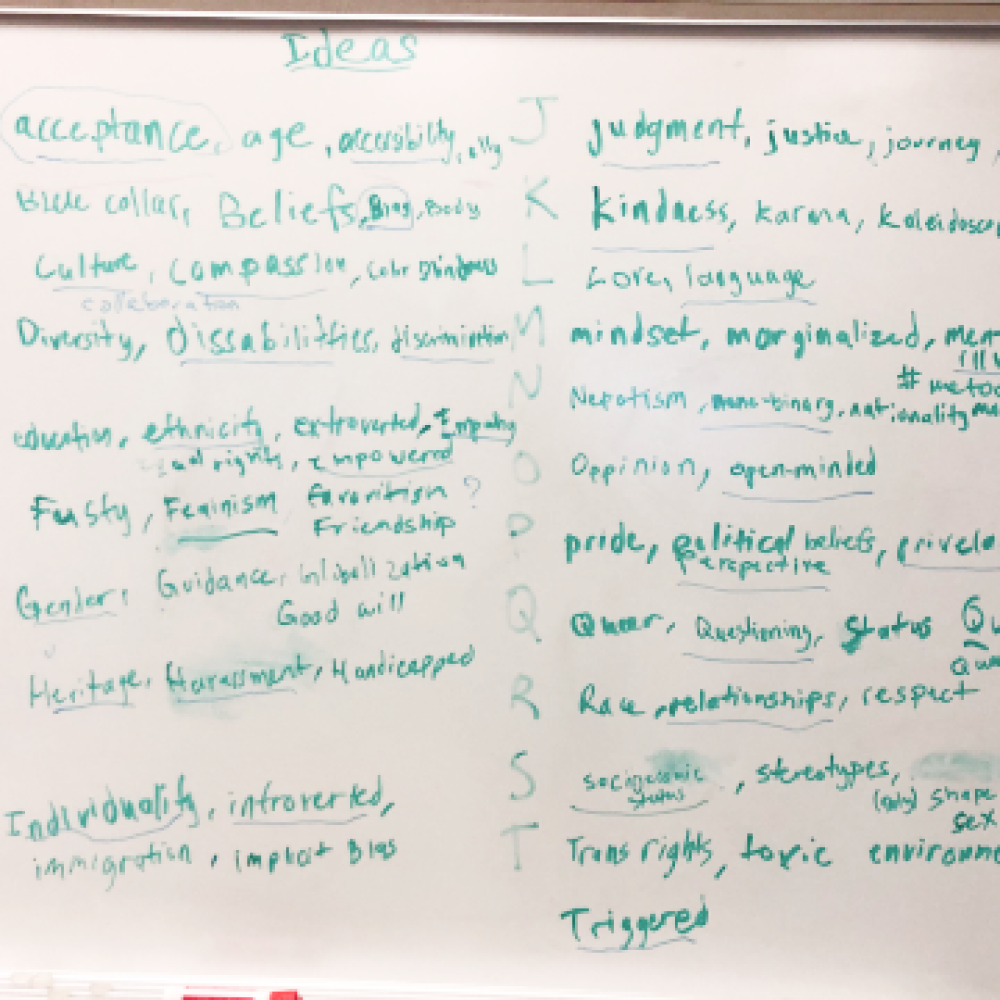 Ideas
acceptance, age, accessibility, ally
Blue collar, Beliefs, Bias, Body
Culture, compassion, Color Blindness
collaboration
Diversity, dissabilities, discrimination
education, ethnicity, extroverted, Empathy
rights, Empowered
Feminism favoritism ?
Friendship
Gender, Guidance,
Good will
Heritage, Harassment, Handicapped
Individuality, introverted,
immigration, implicit Bias
J judgment, justice, journey,
K kindness, karma,
L Love, language
M mindset, marginalized,
N Nepotism, nationality
O Oppinion, open-minded
P pride, political beliefs,
Perspective
Q Queer, Questioning, Status
R Race, relationships, respect
S stereotypes,
status shape
sex
T Trans rights, toxic
Triggered